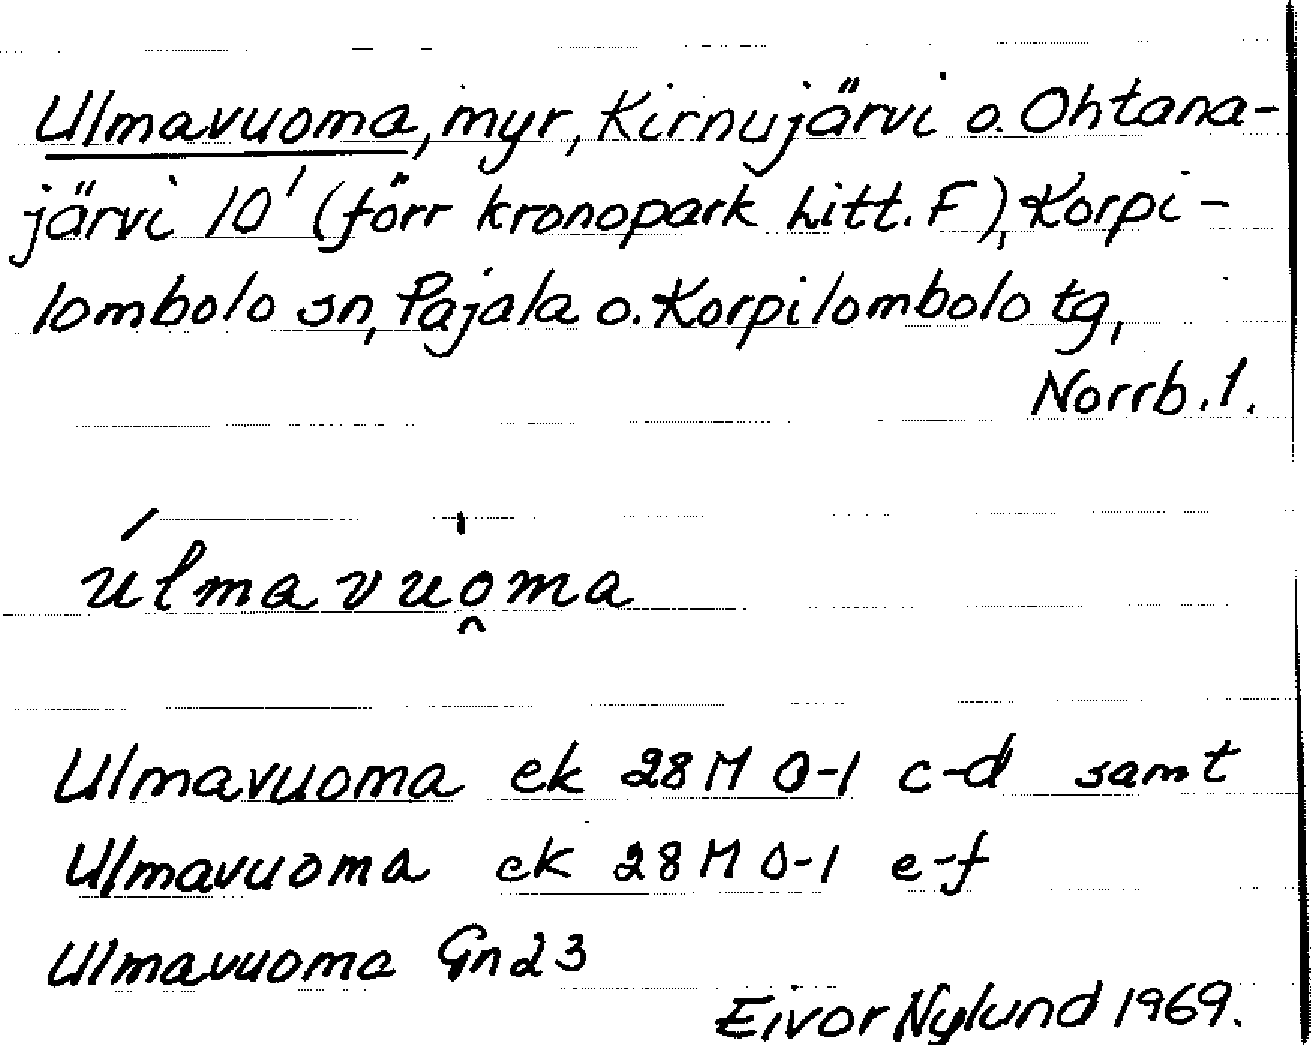 Ulmavuoma, myr, Kirnujärvi o. Ohtana-
järvi 10' (förr kronopark Litt. F), Korpi-
lombolo sn, Pajala o. Korpilombolo tg,
Norrb. l.
úlmavuo̯ma
Ulmavuoma ek 28 M 0-1 c-d samt
Ulmavuoma ek 28 M 0-1 e-f
Ulmavuoma Gn 23
Eivor Nylund 1969.